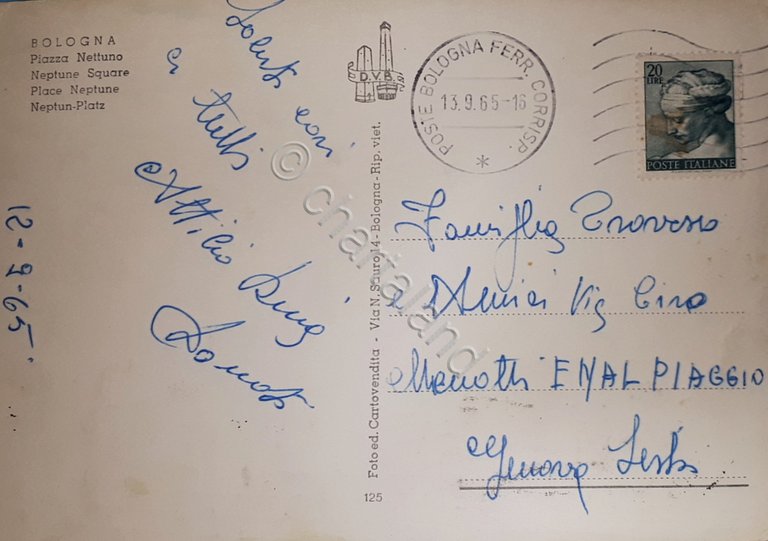 BOLOGNA
Piazza Nettuno
Neptune Square
Place Neptune
Neptun-Platz
Saluti cari
a tutti
Attilio
Donato
12-9-65
D.V.B.
Foto ed. Cartovendita - Via N. Sauro, 14 - Bologna - Rip. viet.
125
POSTE BOLOGNA FERR. CORRISP.
13.9.65-16
*
20
LIRE
POSTE ITALIANE
Famiglia Traverso
e Amici Via Ciro
Menotti ENAL PIAGGIO
Genova Sestri
© chartaland